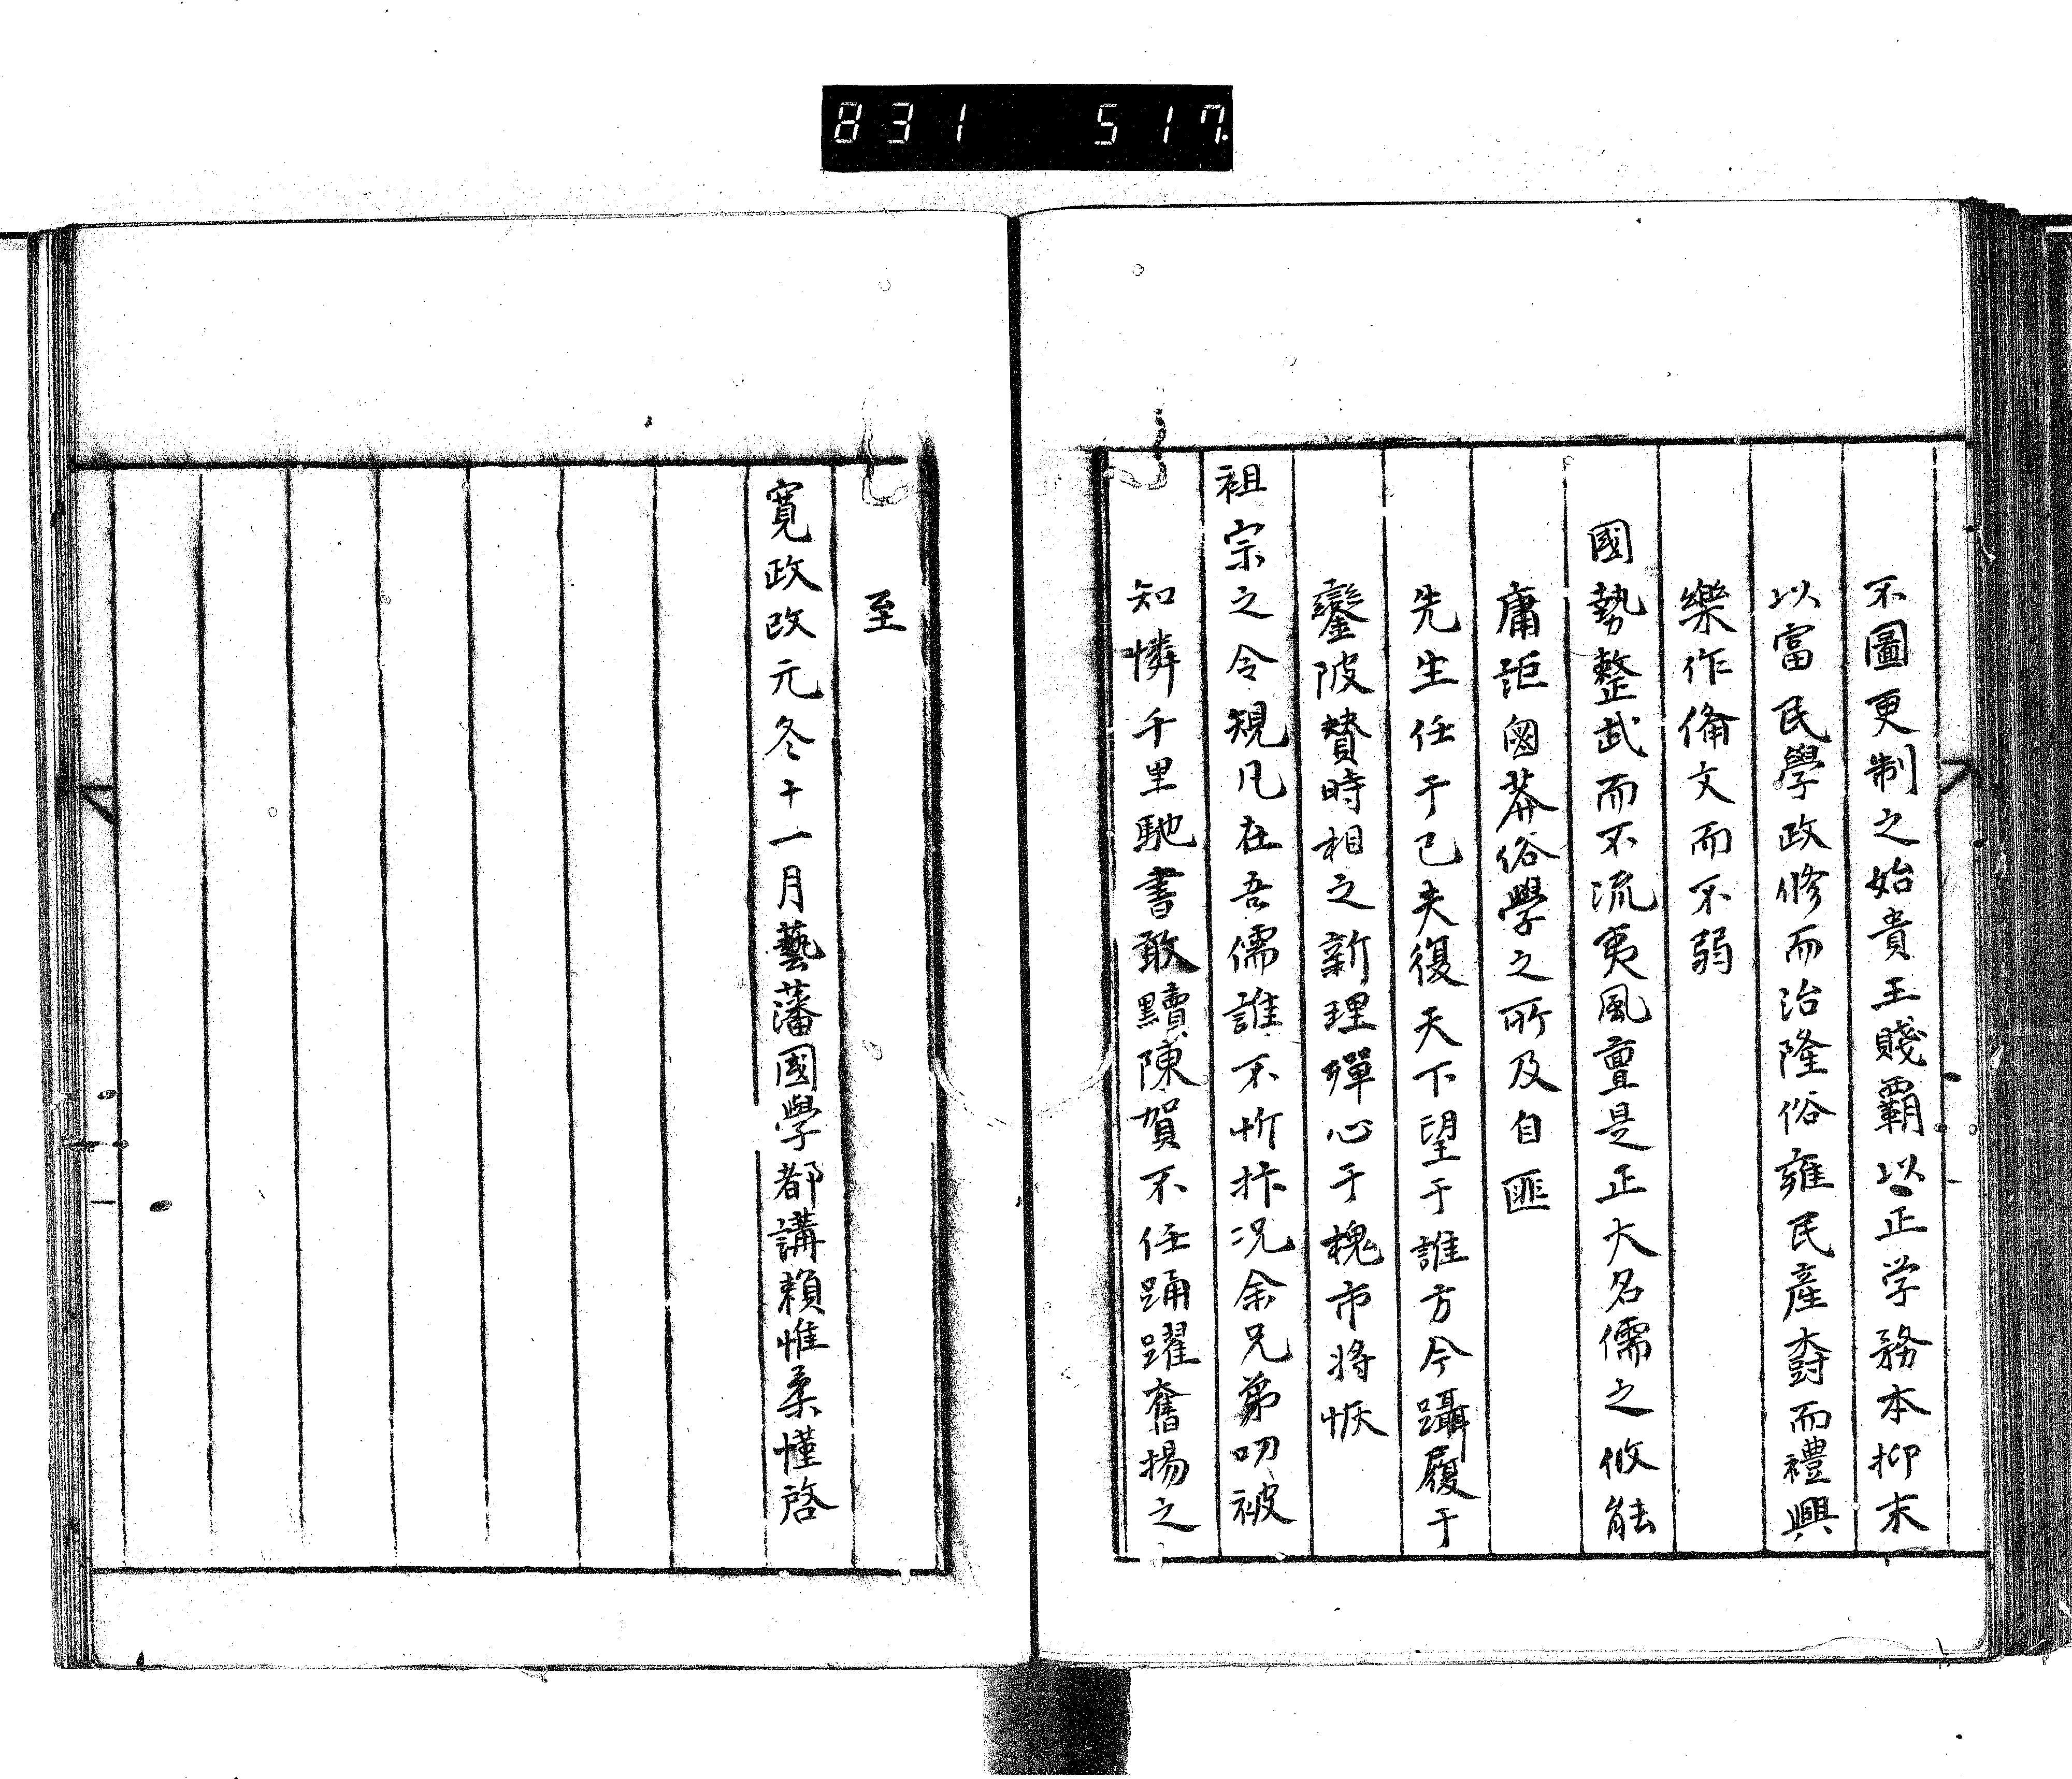 831 517
不圖更制之始貴王賤霸以正学務本抑末
以富民學政修而治隆俗雍民産而禮興
樂作備文而不弱
國勢整武而不流夷風亶是正大名儒之攸能
庸詎鹵莽俗學之所及自匪
先生任于己夫復天下望于誰方今躡履于
鑾陂賛時相之新理殫心于槐市将恢
祖宗之令規凡在吾儒誰不忻抃况余兄弟叨被
知憐千里馳書敢黷陳賀不任踊躍奮揚之
至
寛政改元冬十一月藝藩國學都講頼惟柔慬啓